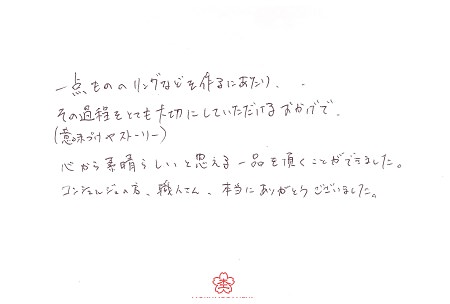 一点もののリングなどを作るにあたり、
その過程をとても大切にしていただけるおかげで、
(意味づけやストーリー)
心から素晴らしいと思える一品を頂くことができました。
コンシェルジュの方、職人さん、本当にありがとうございました。